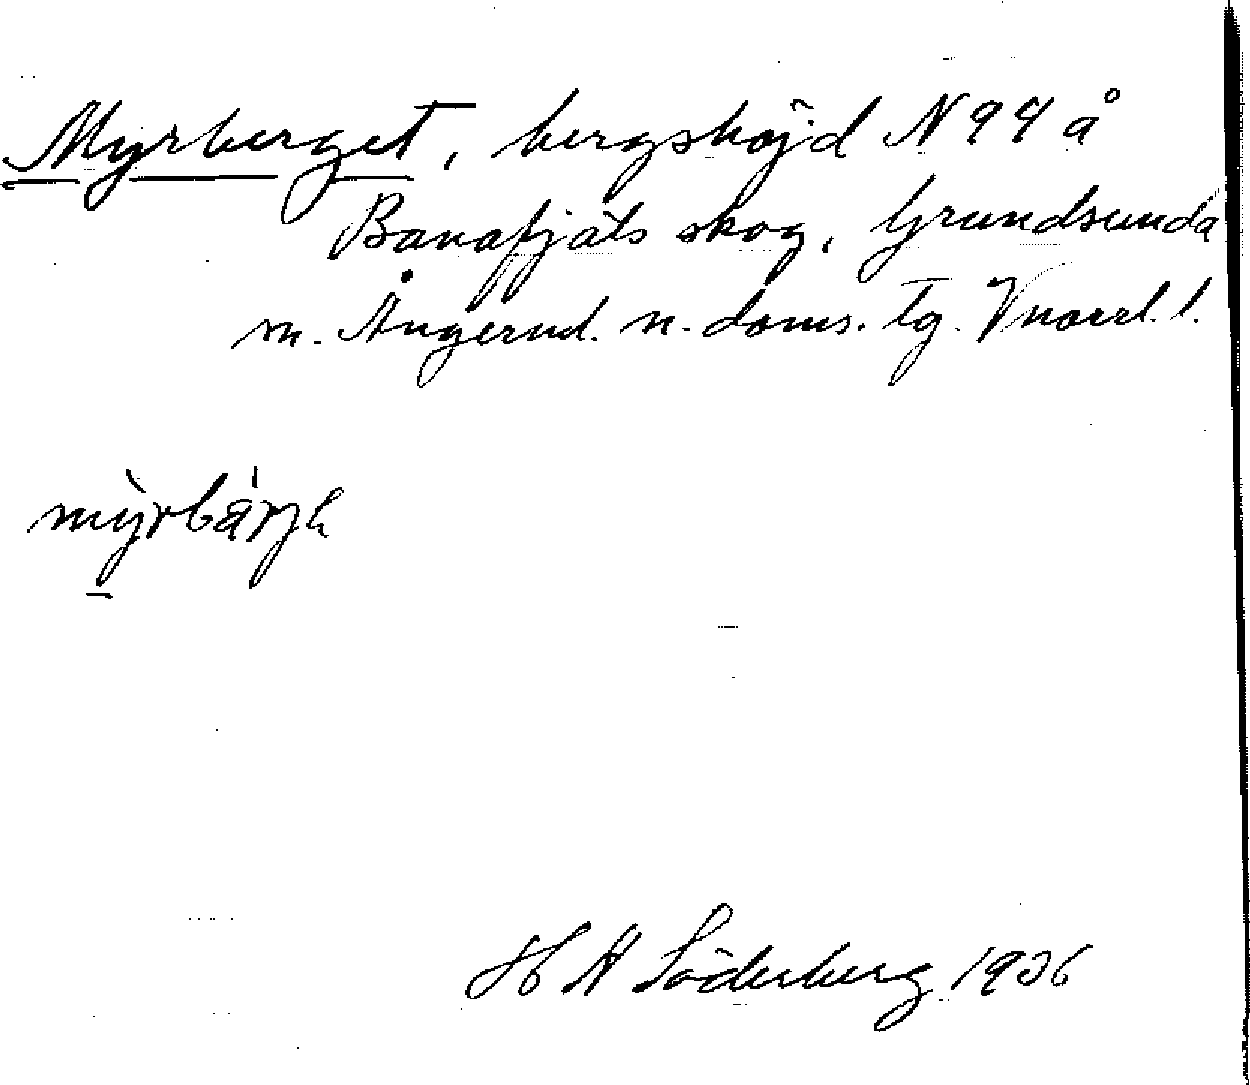 Myrberget, bergshöjd N 94 å
Banafjäls skog, Grundsunda
m. Ångerml. n. doms. tg. Vnorrl. l.
mỳrbä́rjk
H A Söderberg 1936